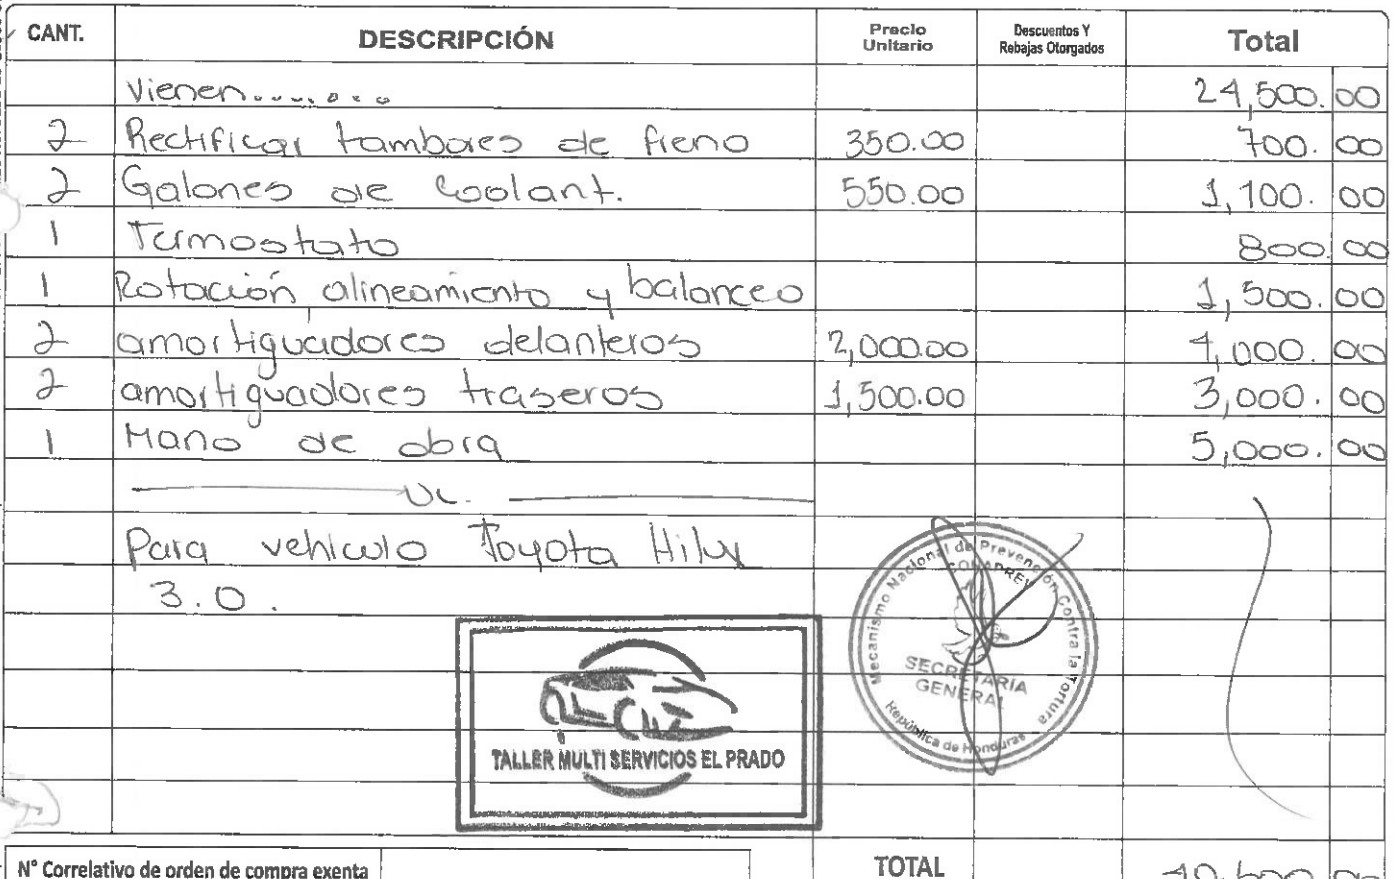 CANT. DESCRIPCIÓN Precio Unitario Descuentos Y Rebajas Otorgados Total
Vienen......... 24,500.00
2 Rectificar tambores de freno 350.00 700.00
2 Galones de Coolant. 550.00 1,100.00
1 Termostato 800.00
1 Rotación alineamiento y balanceo 1,500.00
2 amortiguadores delanteros 2,000.00 4,000.00
2 amortiguadores traseros 1,500.00 3,000.00
1 Mano de obra 5,000.00
UL.
Para vehiculo Toyota Hilux
3.0.
Mecanismo Nacional de Prevención Contra la Tortura
CONAPREV
SECRETARIA
GENERAL
República de Honduras
TALLER MULTI SERVICIOS EL PRADO
N° Correlativo de orden de compra exenta TOTAL 40,600.00